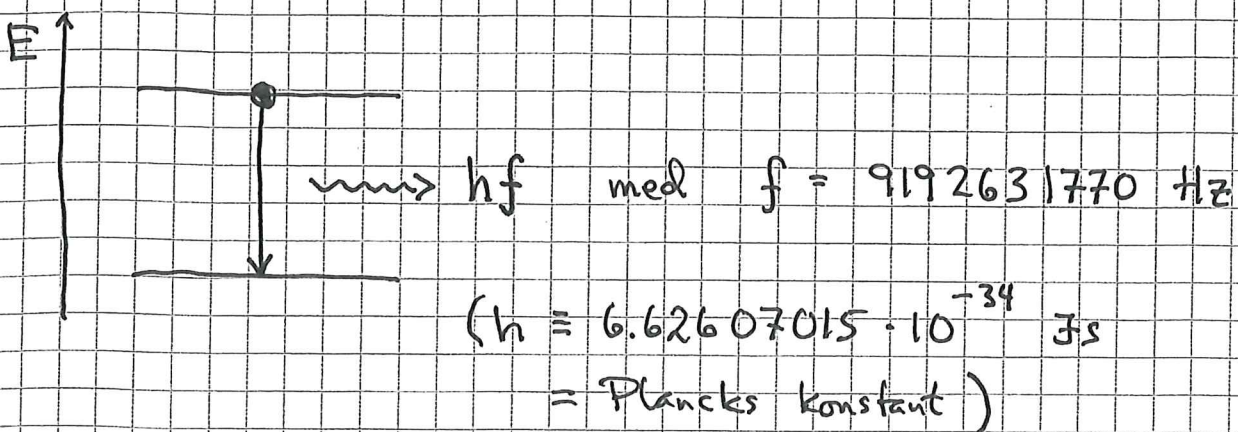 E
hf med f = 9192631770 Hz
(h ≡ 6.62607015 · 10⁻³⁴ Js
= Plancks konstant)